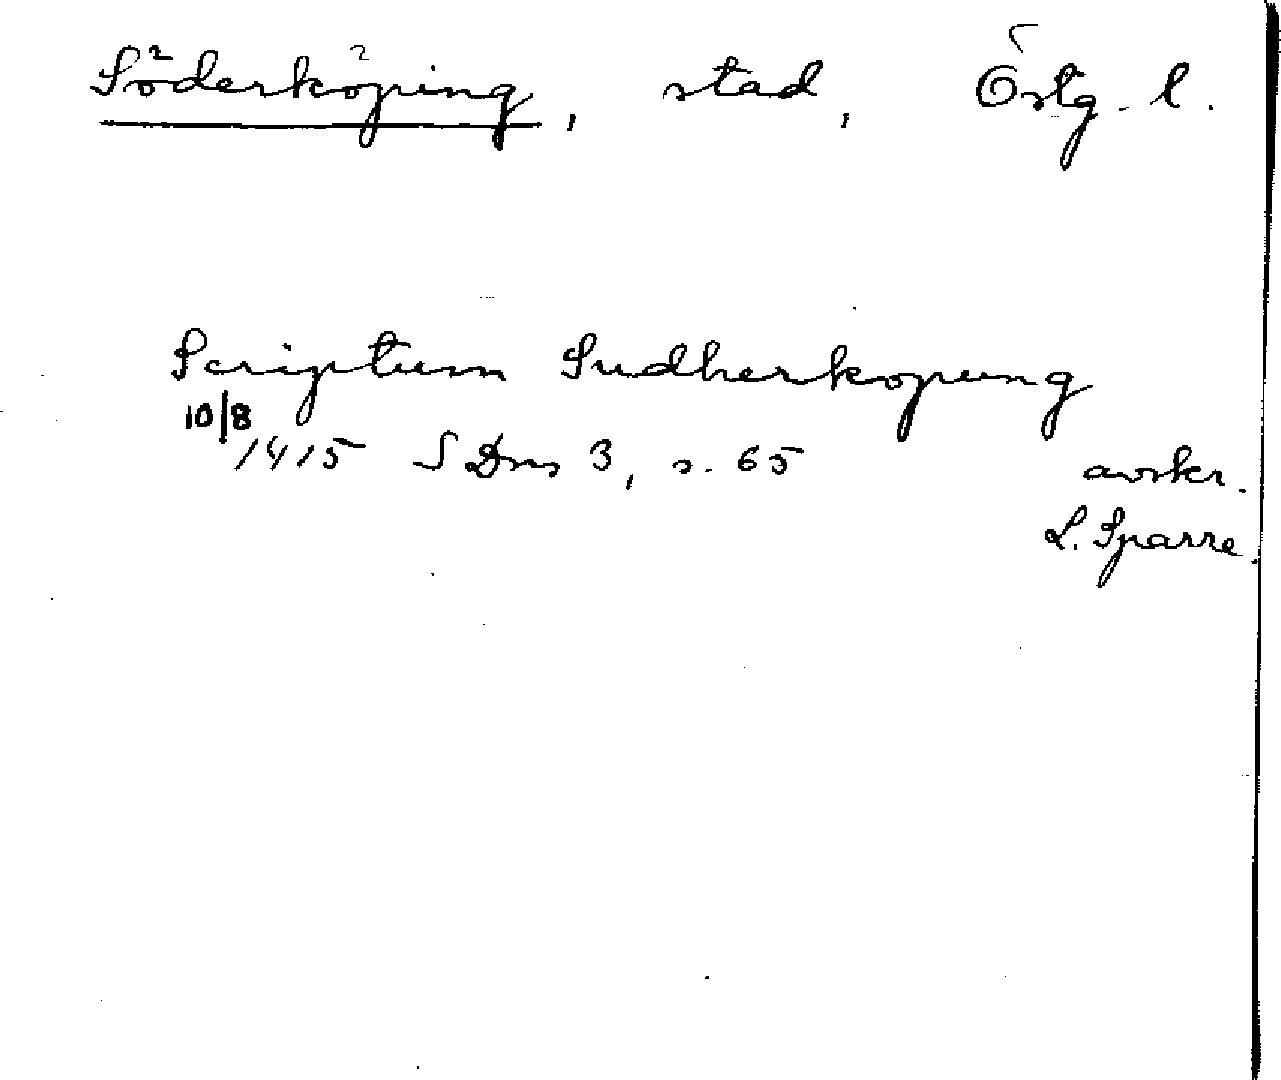 Söderköping, stad, Östg. l.
Scriptum Sudherkopung
10/8
1415 SDns 3, s. 65
avskr.
L. Sparre